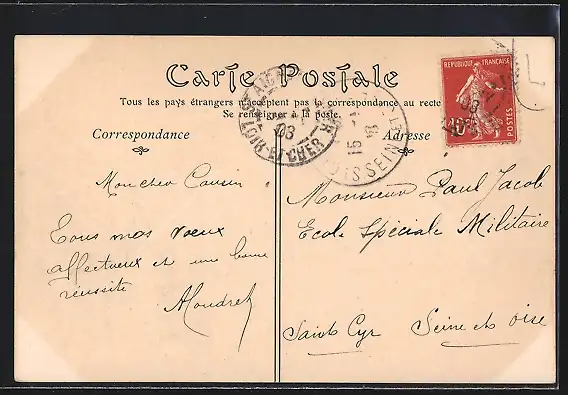 Carte Postale
Tous les pays étrangers n'acceptent pas la correspondance au recto
Se renseigner à la poste.
Correspondance
Adresse
REPUBLIQUE FRANÇAISE
10c
POSTES
LOIR-ET-CHER
08
15
Mon cher Cousin
Tous mes vœux
affectueux et une bonne
réussite
Monsieur Paul Jacob
Ecole spéciale Militaire
Saint Cyr Seine et Oise